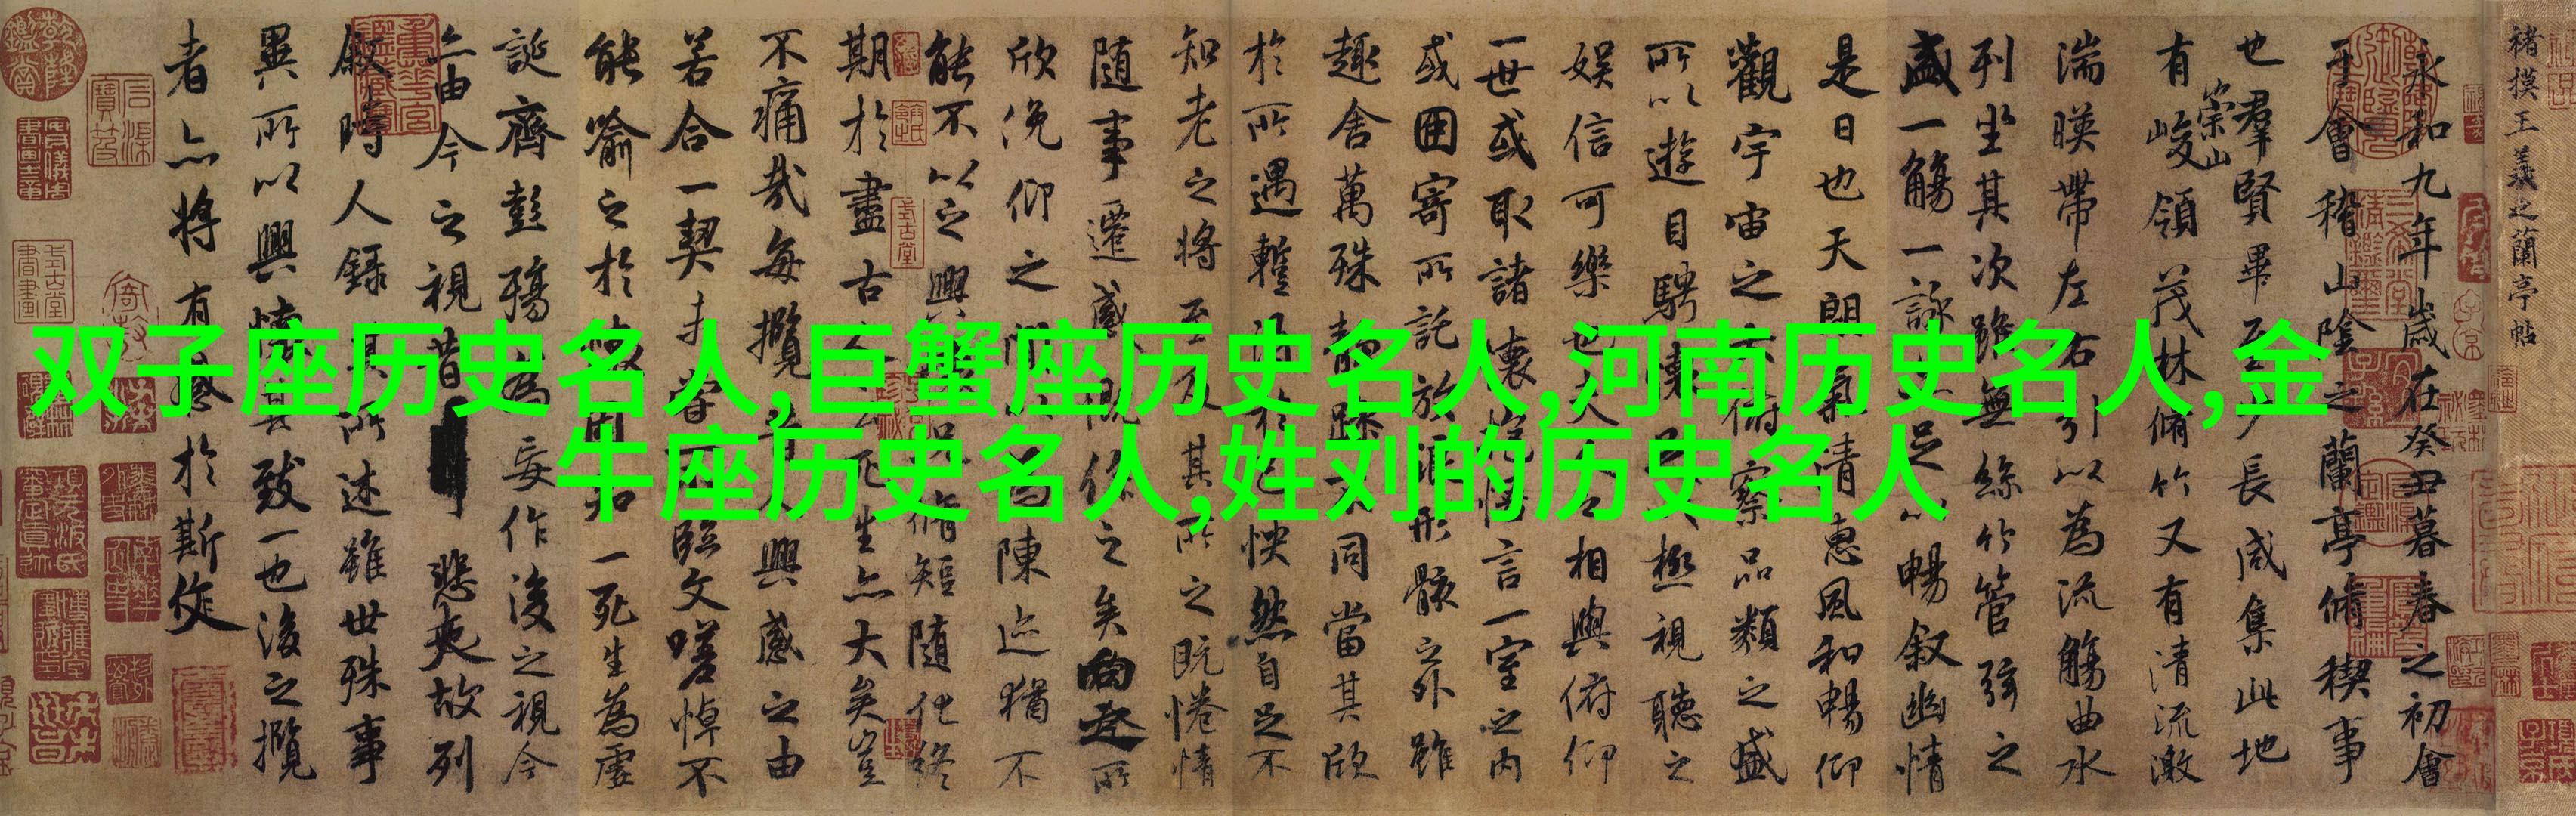 双子座历史名人,巨蟹座历史名人,河南历史名人,金
牛座历史名人,姓刘的历史名人
褚摸王羲之蘭亭帖
永和九年歲在癸丑暮春之初會
于會稽山陰之蘭亭脩稧事
也羣賢畢至少長咸集此地
有崇山峻領茂林脩竹又有清流激
湍暎帶左右引以為流觴曲水
列坐其次雖無絲竹管弦之
盛一觴一詠足以暢叙幽情
是日也天朗氣清惠風和暢仰
觀宇宙之大俯察品類之盛
所以遊目騁懷足以極視聽之
娛信可樂也夫人之相與俯仰
一世或取諸懷抱悟言一室之內
或因寄所託放浪形骸之外雖
趣舍萬殊靜躁不同當其欣
於所遇蹔得於己怏然自足不
知老之將至及其所之既惓情
隨事遷感慨係之矣向之所
欣俛仰之間以為陳迹猶不
能不以之興懷況脩短隨化終
期於盡古人云死生亦大矣豈
不痛哉每攬昔人興感之由
若合一契未嘗不臨文嗟悼不
能喻之於懷固知一死生為虛
誕齊彭殤為妄作後之視今
亦由今之視昔悲夫故列
敘時人録其所述雖世殊事
異所以興情其致一也後之攬
者亦將有感於斯文